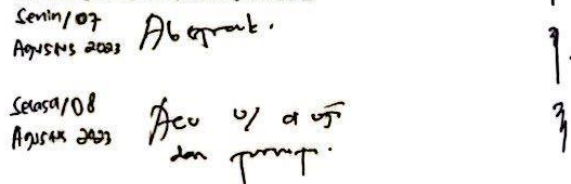 Senin/07
Agustus 2023 Abstrak.
Selasa/08
Agustus 2023 Acc u/ di uji
dan